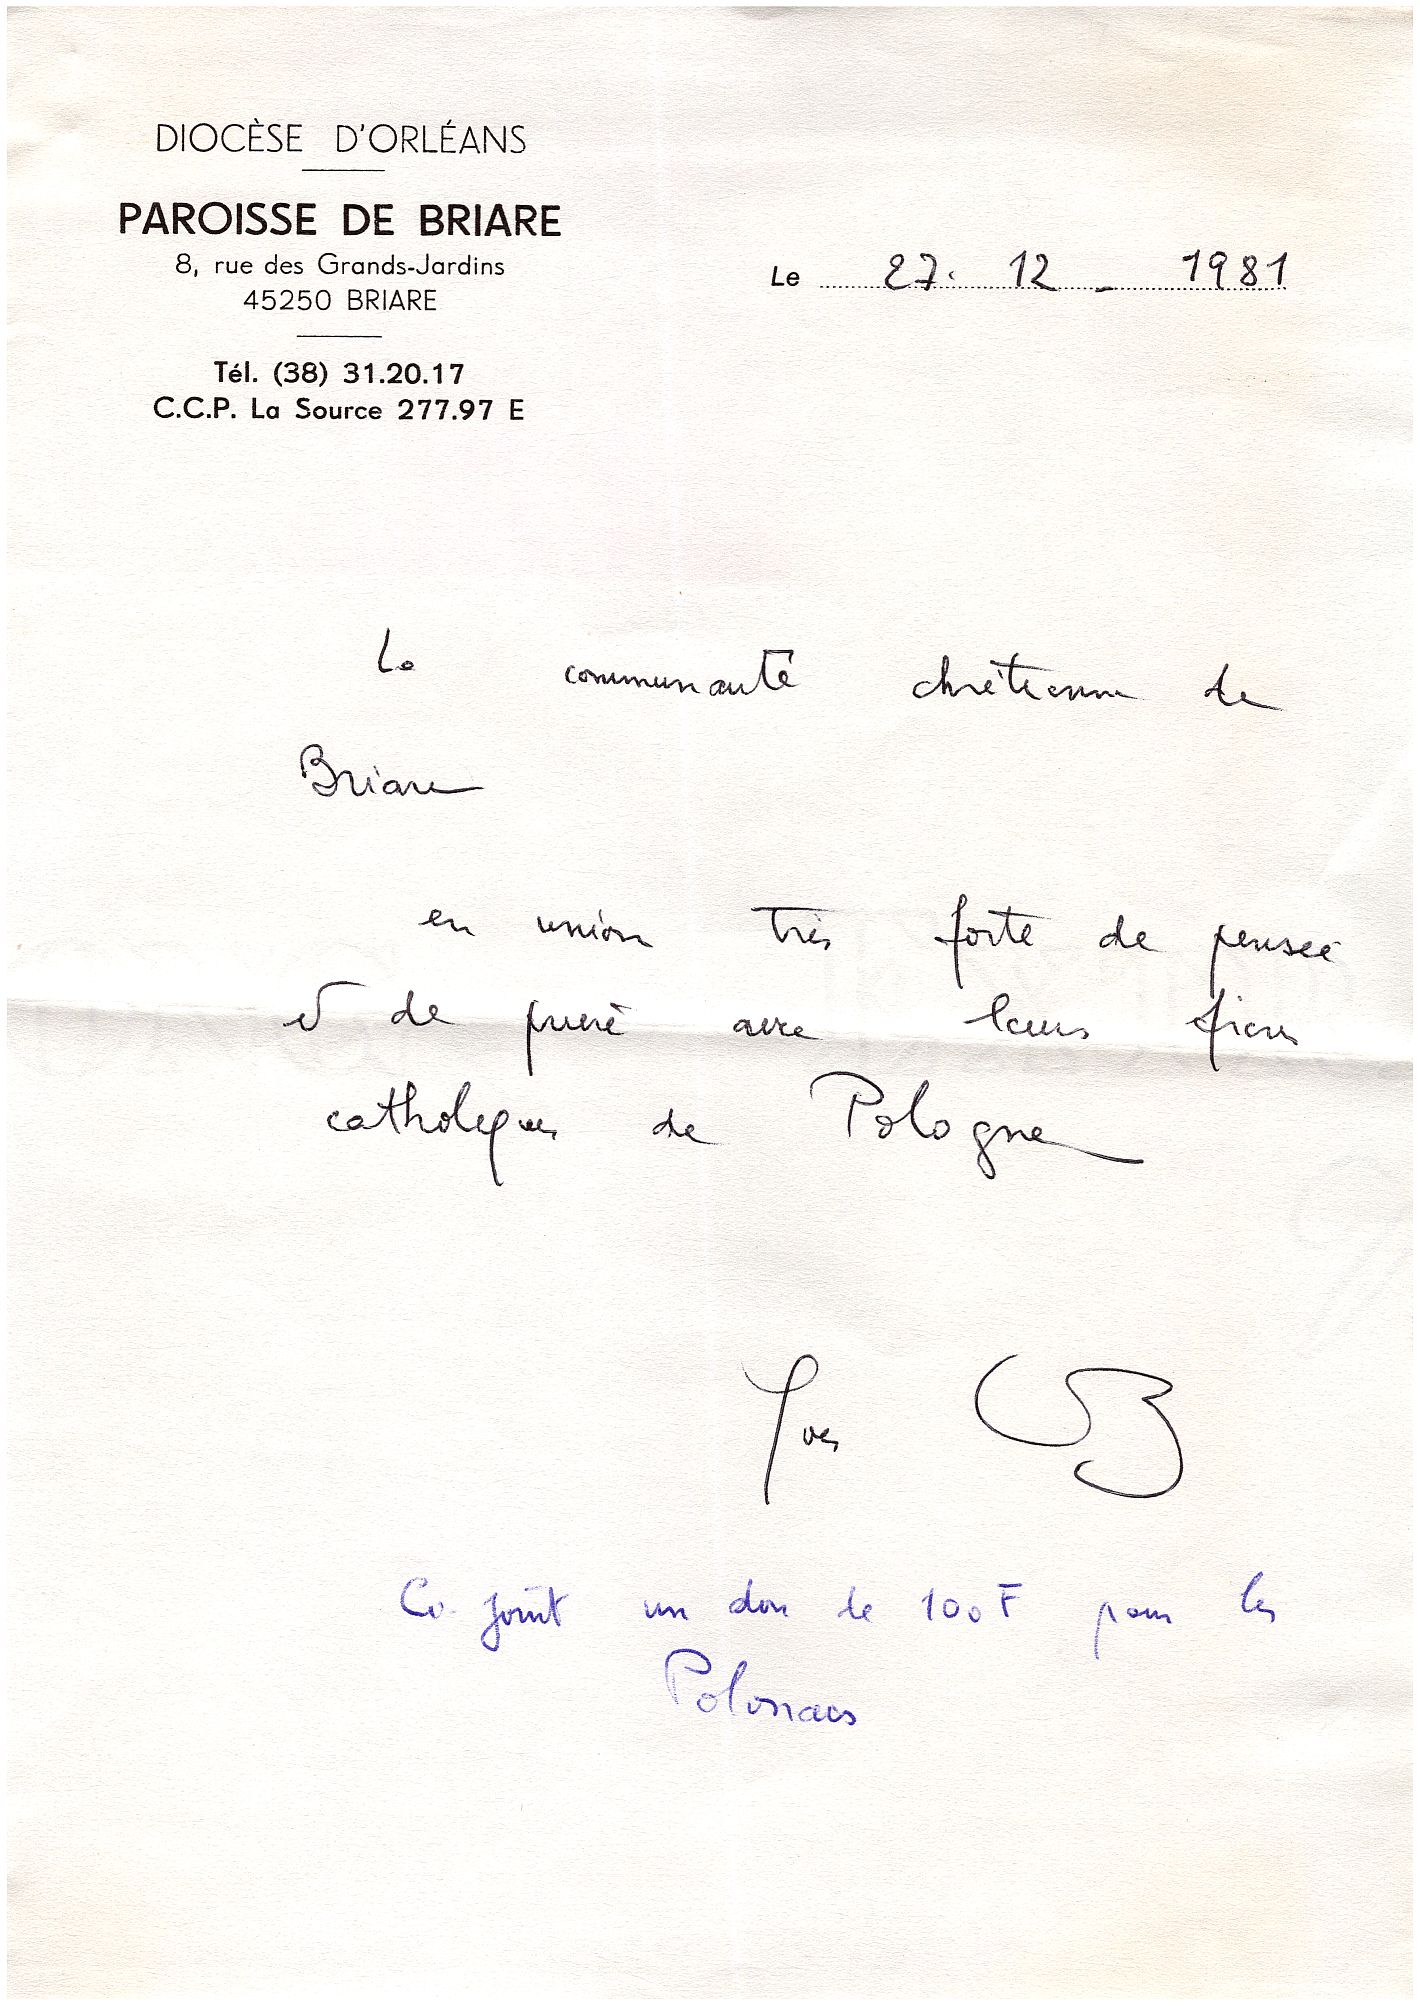 DIOCÈSE D'ORLÉANS
PAROISSE DE BRIARE
8, rue des Grands-Jardins
45250 BRIARE
Tél. (38) 31.20.17
C.C.P. La Source 277.97 E
Le 27. 12 - 1981
La communauté chrétienne de
Briare
en union très forte de pensée
et de prière avec leurs frères
catholiques de Pologne
Yves
Ci joint un don de 100F pour les
Polonais